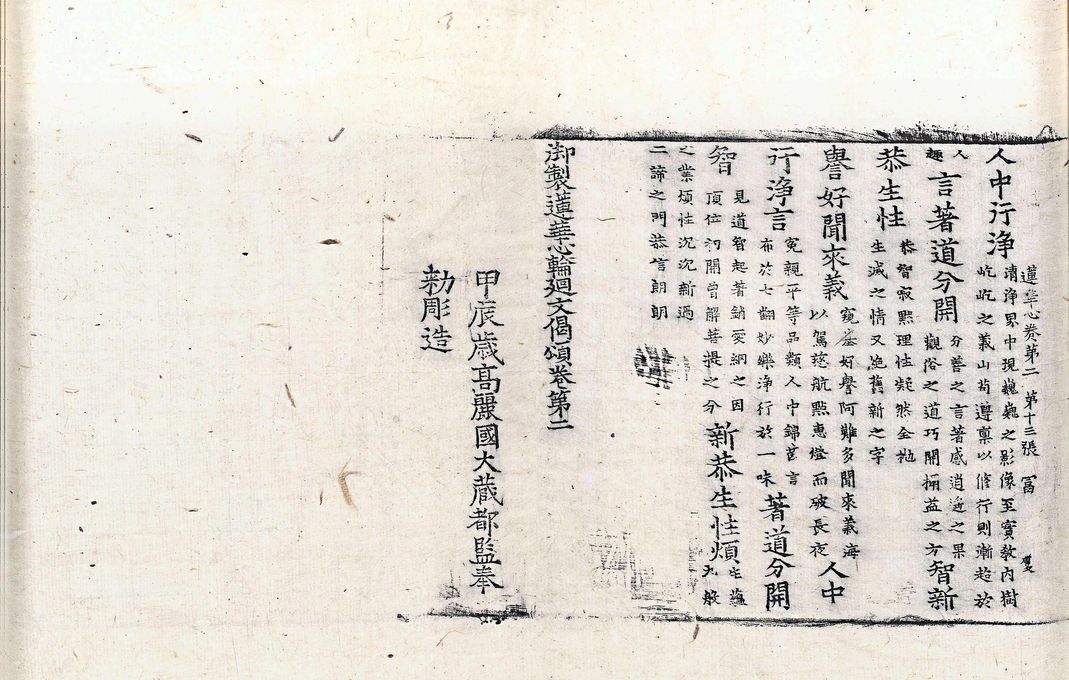 蓮華心卷第二　第十三張　冨
人中行淨清淨界中現巍巍之影像至實教內樹屹屹之義山苟遵禀以修行則漸超於
人趣言著道分開分善之言著感逍遙之果觀俗之道巧開損益之方智新
恭生性恭智寂默理性凝然全拋生滅之情又絶舊新之字
譽好聞來義窺鉴好譽阿難多聞來義海以駕慈航點惠燈而破長夜人中
行淨言寃親平等品類人中錦言布於七翻妙樂淨行於一味著道分開
智見道智起著納受網之因頂位初開曾解菩提之分新恭生性煩生滅九般
之業煩性沉沉新過二諦之門恭信朝朝
御製蓮華心輪廻文偈頌卷第二
甲辰歲高麗國大藏都監奉
勑彫造